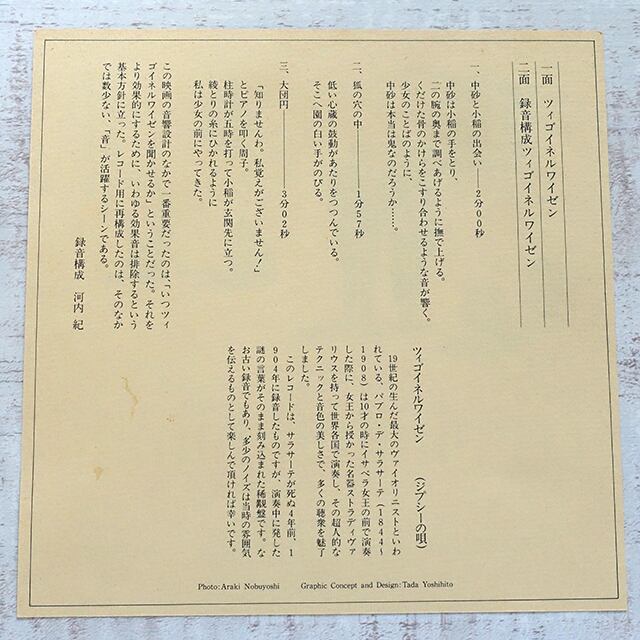 一面　ツィゴイネルワイゼン
二面　録音構成ツィゴイネルワイゼン
一、中砂と小稲の出会い　2分00秒
中砂は小稲の手をとり、
二の腕の奥まで調べあげるように撫で上げる。
くだけた骨のかけらをこすり合わせるような音が響く。
少女のことばのように、
中砂は本当は鬼なのだろうか……。
二、狐の穴の中　1分57秒
低い心蔵の鼓動があたりをつつんでいる。
そこへ園の白い手がのびる。
三、大団円　3分02秒
「知りませんわ。私覚えがございません！」
とピアノを叩く周子。
柱時計が五時を打って小稲が玄関先に立つ。
綾とりの糸にひかれるように
私は少女の前にやってきた。
この映画の音響設計のなかで一番重要だったのは「いつツィ
ゴイネルワイゼンを聞かせるか」ということだった。それを
より効果的にするために、いわゆる効果音は排除するという
基本方針に立った。レコード用に再構成したのは、そのなか
では数少ない、「音」が活躍するシーンである。
録音構成　河内　紀
ツィゴイネルワイゼン　（ジプシーの唄）
19世紀の生んだ最大のヴァイオリニストといわ
れている、パブロ・デ・サラサーテ（1844〜
1908）は10才の時にイサベラ女王の前で演奏
した際に、女王から授かった名器ストラディヴァ
リウスを持って世界各国で演奏し、その超人的な
テクニックと音色の美しさで、多くの聴衆を魅了
しました。
このレコードは、サラサーテが死ぬ4年前、1
904年に録音したものですが、演奏中に発した
謎の言葉がそのまま刻み込まれた稀覯盤です。な
お古い録音でもあり、多少のノイズは当時の雰囲気
を伝えるものとして楽しんで頂ければ幸いです。
Photo:Araki Nobuyoshi　Graphic Concept and Design:Tada Yoshihito